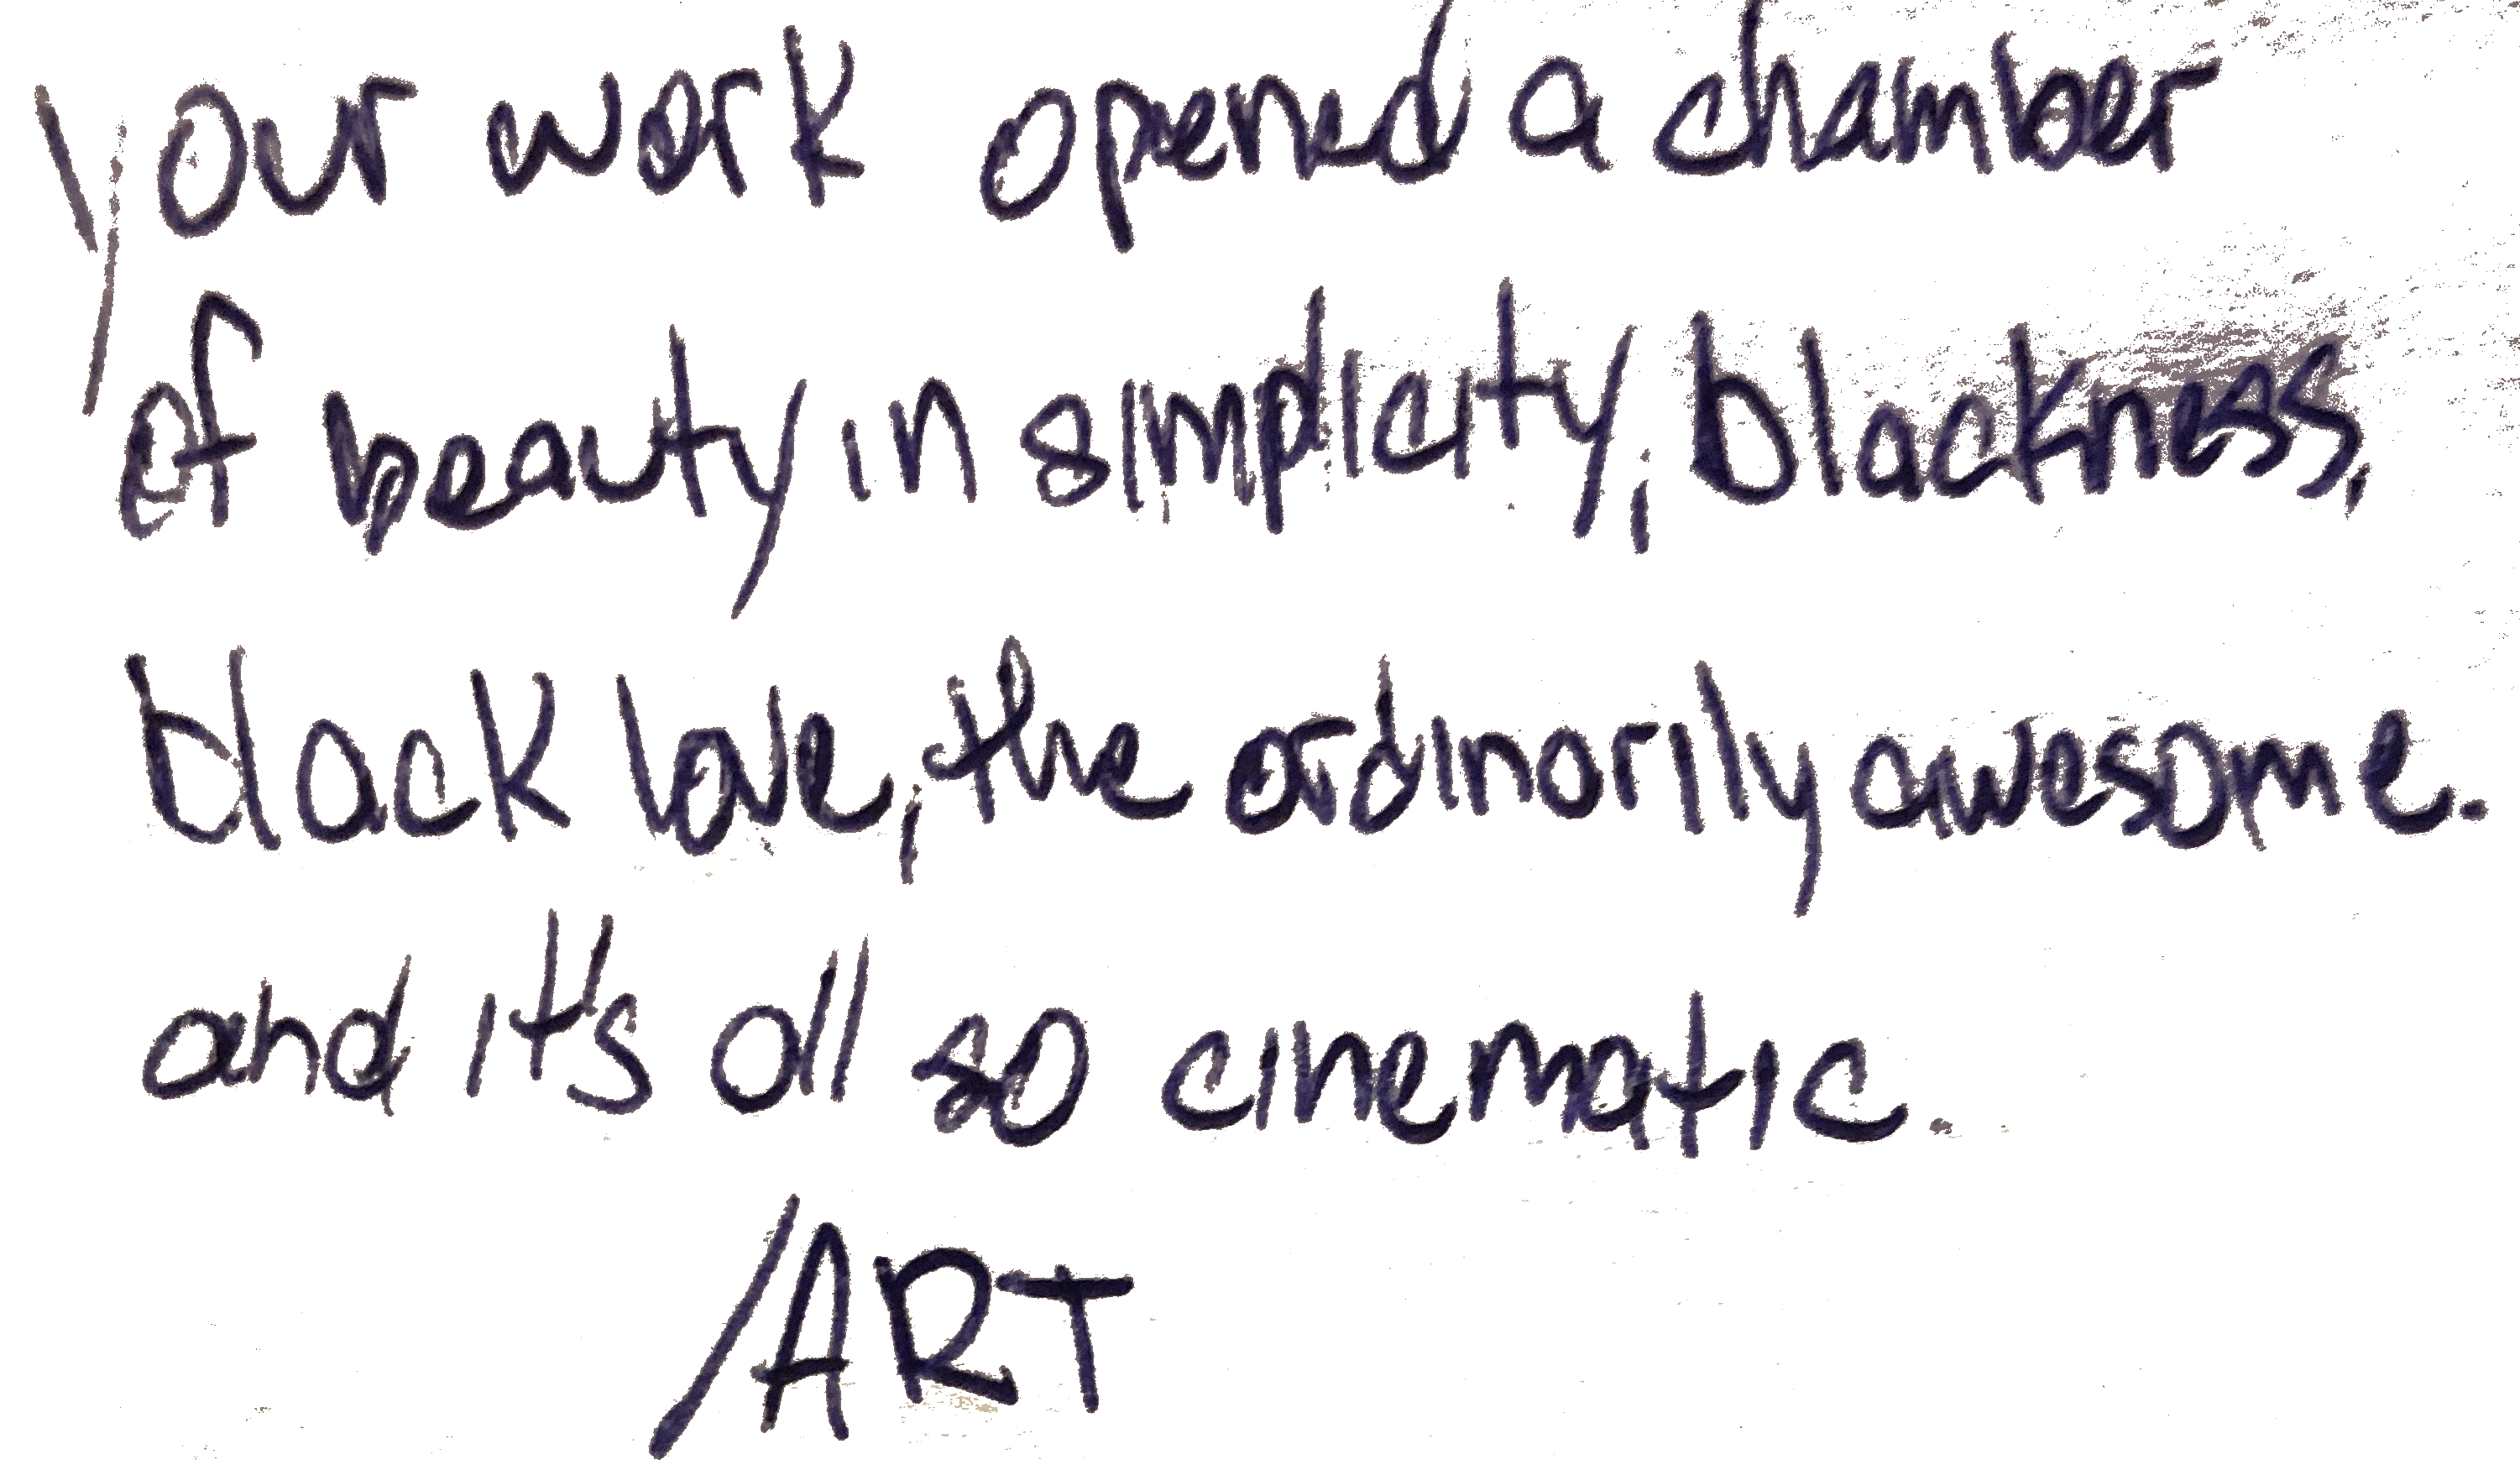 your work opened a chamber
of beauty in simplicity, blackness,
black love, the ordinarily awesome.
and it's all so cinematic.
/ART